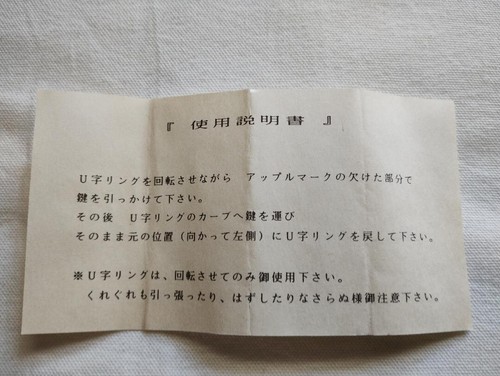 『 使用説明書 』
U字リングを回転させながら アップルマークの欠けた部分で
鍵を引っかけて下さい。
その後 U字リングのカーブへ鍵を運び
そのまま元の位置(向かって左側)にU字リングを戻して下さい。
※U字リングは、回転させてのみ御使用下さい。
くれぐれも引っ張ったり、はずしたりなさらぬ様御注意下さい。